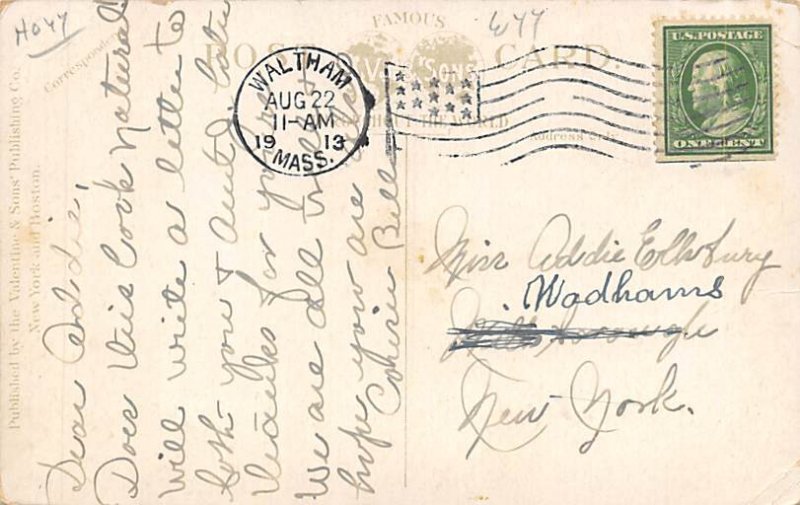 H044
W44
FAMOUS
POST CARD.
Valentine & Sons'
THROUGHOUT THE WORLD
Correspondence
Address Only
Published by the Valentine & Sons Publishing Co.
New York and Boston.
WALTHAM
AUG 22
11-AM
1913
MASS.
U.S. POSTAGE
ONE CENT
Dear Addie,
Does this look natural
will write a letter to
both you & Aunt Di later
thanks for yours
We are all well
hope you are
Cousin Bell
Miss Addie Ellsbury
Wadhams
Willsborough
New York.